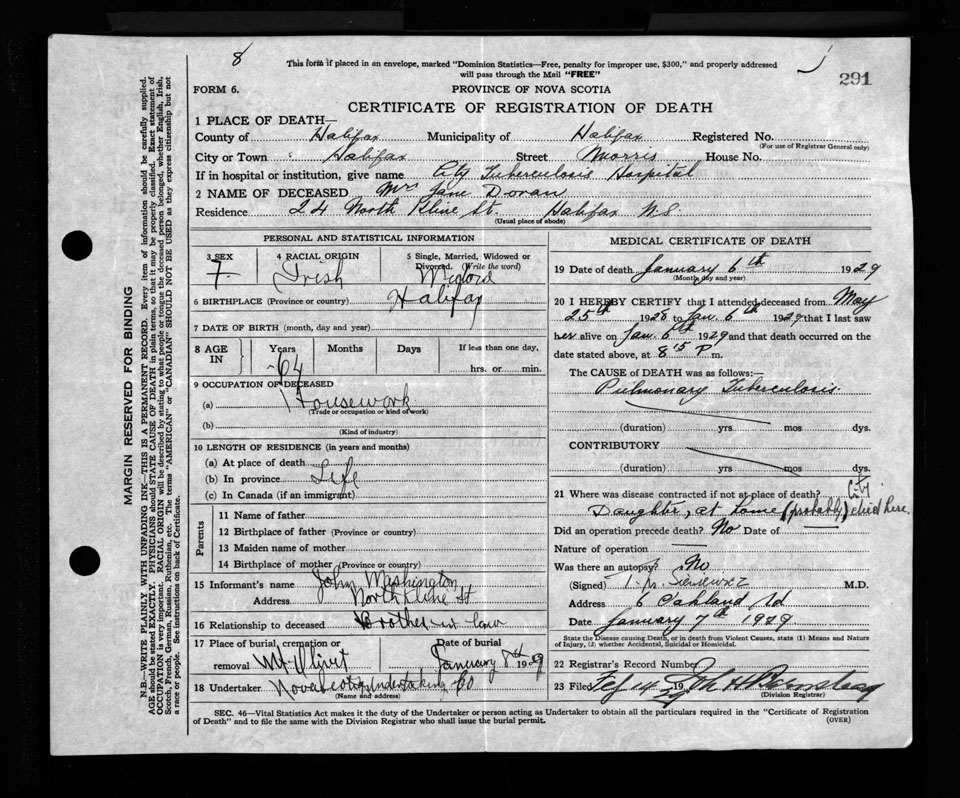 8
This form if placed in an envelope, marked "Dominion Statistics—Free, penalty for improper use, $300," and properly addressed
will pass through the Mail "FREE"
291
FORM 6.
PROVINCE OF NOVA SCOTIA
CERTIFICATE OF REGISTRATION OF DEATH
1 PLACE OF DEATH—
County of Halifax Municipality of Halifax Registered No.
(For use of Registrar General only)
City or Town Halifax Street Morris House No.
If in hospital or institution, give name City Tuberculosis Hospital
2 NAME OF DECEASED Mrs Jane Doran
Residence 24 North Kline St. Halifax N.S.
(Usual place of abode)
PERSONAL AND STATISTICAL INFORMATION
3 SEX F.
4 RACIAL ORIGIN Irish
5 Single, Married, Widowed or Divorced. (Write the word) Widow
6 BIRTHPLACE (Province or country) Halifax
7 DATE OF BIRTH (month, day and year)
8 AGE IN Years Months Days If less than one day,
64 hrs. or min.
9 OCCUPATION OF DECEASED
(a) Housework
(Trade or occupation or kind of work)
(b)
(Kind of industry)
10 LENGTH OF RESIDENCE (in years and months)
(a) At place of death
(b) In province Life
(c) In Canada (if an immigrant)
Parents
11 Name of father
12 Birthplace of father (Province or country)
13 Maiden name of mother
14 Birthplace of mother (Province or country)
15 Informant's name John Washington
Address North Kline St
16 Relationship to deceased Brother in law
17 Place of burial, cremation or removal Mt Olivet
Date of burial January 8th 1929
18 Undertaker Nova Scotia Undertaking Co
(Name and address)
MEDICAL CERTIFICATE OF DEATH
19 Date of death January 6th 1929
(Month day and year)
20 I HEREBY CERTIFY that I attended deceased from May
25th 1928 to Jan. 6th 1929 that I last saw
her alive on Jan. 6th 1929 and that death occurred on the
date stated above, at 8 15 P m.
The CAUSE OF DEATH was as follows:—
Pulmonary Tuberculosis
(duration) yrs mos dys.
CONTRIBUTORY
(duration) yrs mos dys.
21 Where was disease contracted if not at place of death? City
Daughter, at home (probably) died here.
Did an operation precede death? No Date of
Nature of operation
Was there an autopsy? No
(Signed) M.D.
Address 6 Oakland Rd
Date January 7th 1929
State the Disease causing Death, or in death from Violent Causes, state (1) Means and Nature
of Injury, (2) whether Accidental, Suicidal or Homicidal.
22 Registrar's Record Number
23 Filed Feb 14 19
(Division Registrar)
SEC. 46—Vital Statistics Act makes it the duty of the Undertaker or person acting as Undertaker to obtain all the particulars required in the "Certificate of Registration
of Death" and to file the same with the Division Registrar who shall issue the burial permit.
(OVER)
MARGIN RESERVED FOR BINDING
N.B.—WRITE PLAINLY WITH UNFADING INK—THIS IS A PERMANENT RECORD. Every item of information should be carefully supplied.
AGE should be stated EXACTLY. PHYSICIANS should STATE CAUSE OF DEATH in plain terms, so that it may be properly classified. Exact statement of
OCCUPATION is very important. RACIAL ORIGIN will be described by stating to what people or tongue the deceased person belonged, whether English, Irish,
Scotch, French, German, Russian, Ruthenian, etc. The terms "AMERICAN" or "CANADIAN" SHOULD NOT BE USED as they express citizenship but not
a race or people. See instructions on back of Certificate.